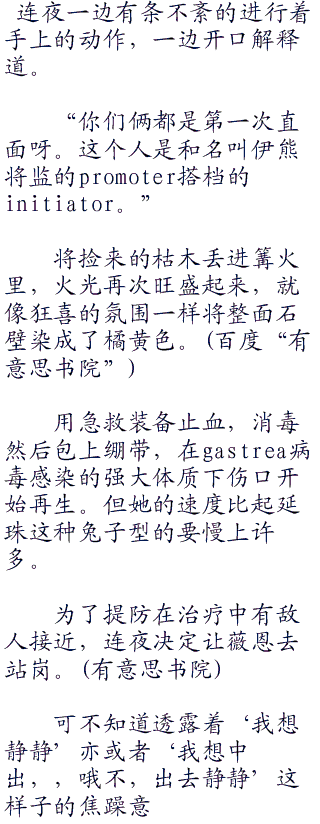 连夜一边有条不紊的进行着
手上的动作，一边开口解释
道。
“你们俩都是第一次直
面呀。这个人是和名叫伊熊
将监的promoter搭档的
initiator。”
将捡来的枯木丢进篝火
里，火光再次旺盛起来，就
像狂喜的氛围一样将整面石
壁染成了橘黄色。(百度“有
意思书院”)
用急救装备止血，消毒
然后包上绷带，在gastrea病
毒感染的强大体质下伤口开
始再生。但她的速度比起延
珠这种兔子型的要慢上许
多。
为了提防在治疗中有敌
人接近，连夜决定让薇恩去
站岗。(有意思书院)
可不知道透露着‘我想
静静’亦或者‘我想中
出，，哦不，出去静静’这
样子的焦躁意